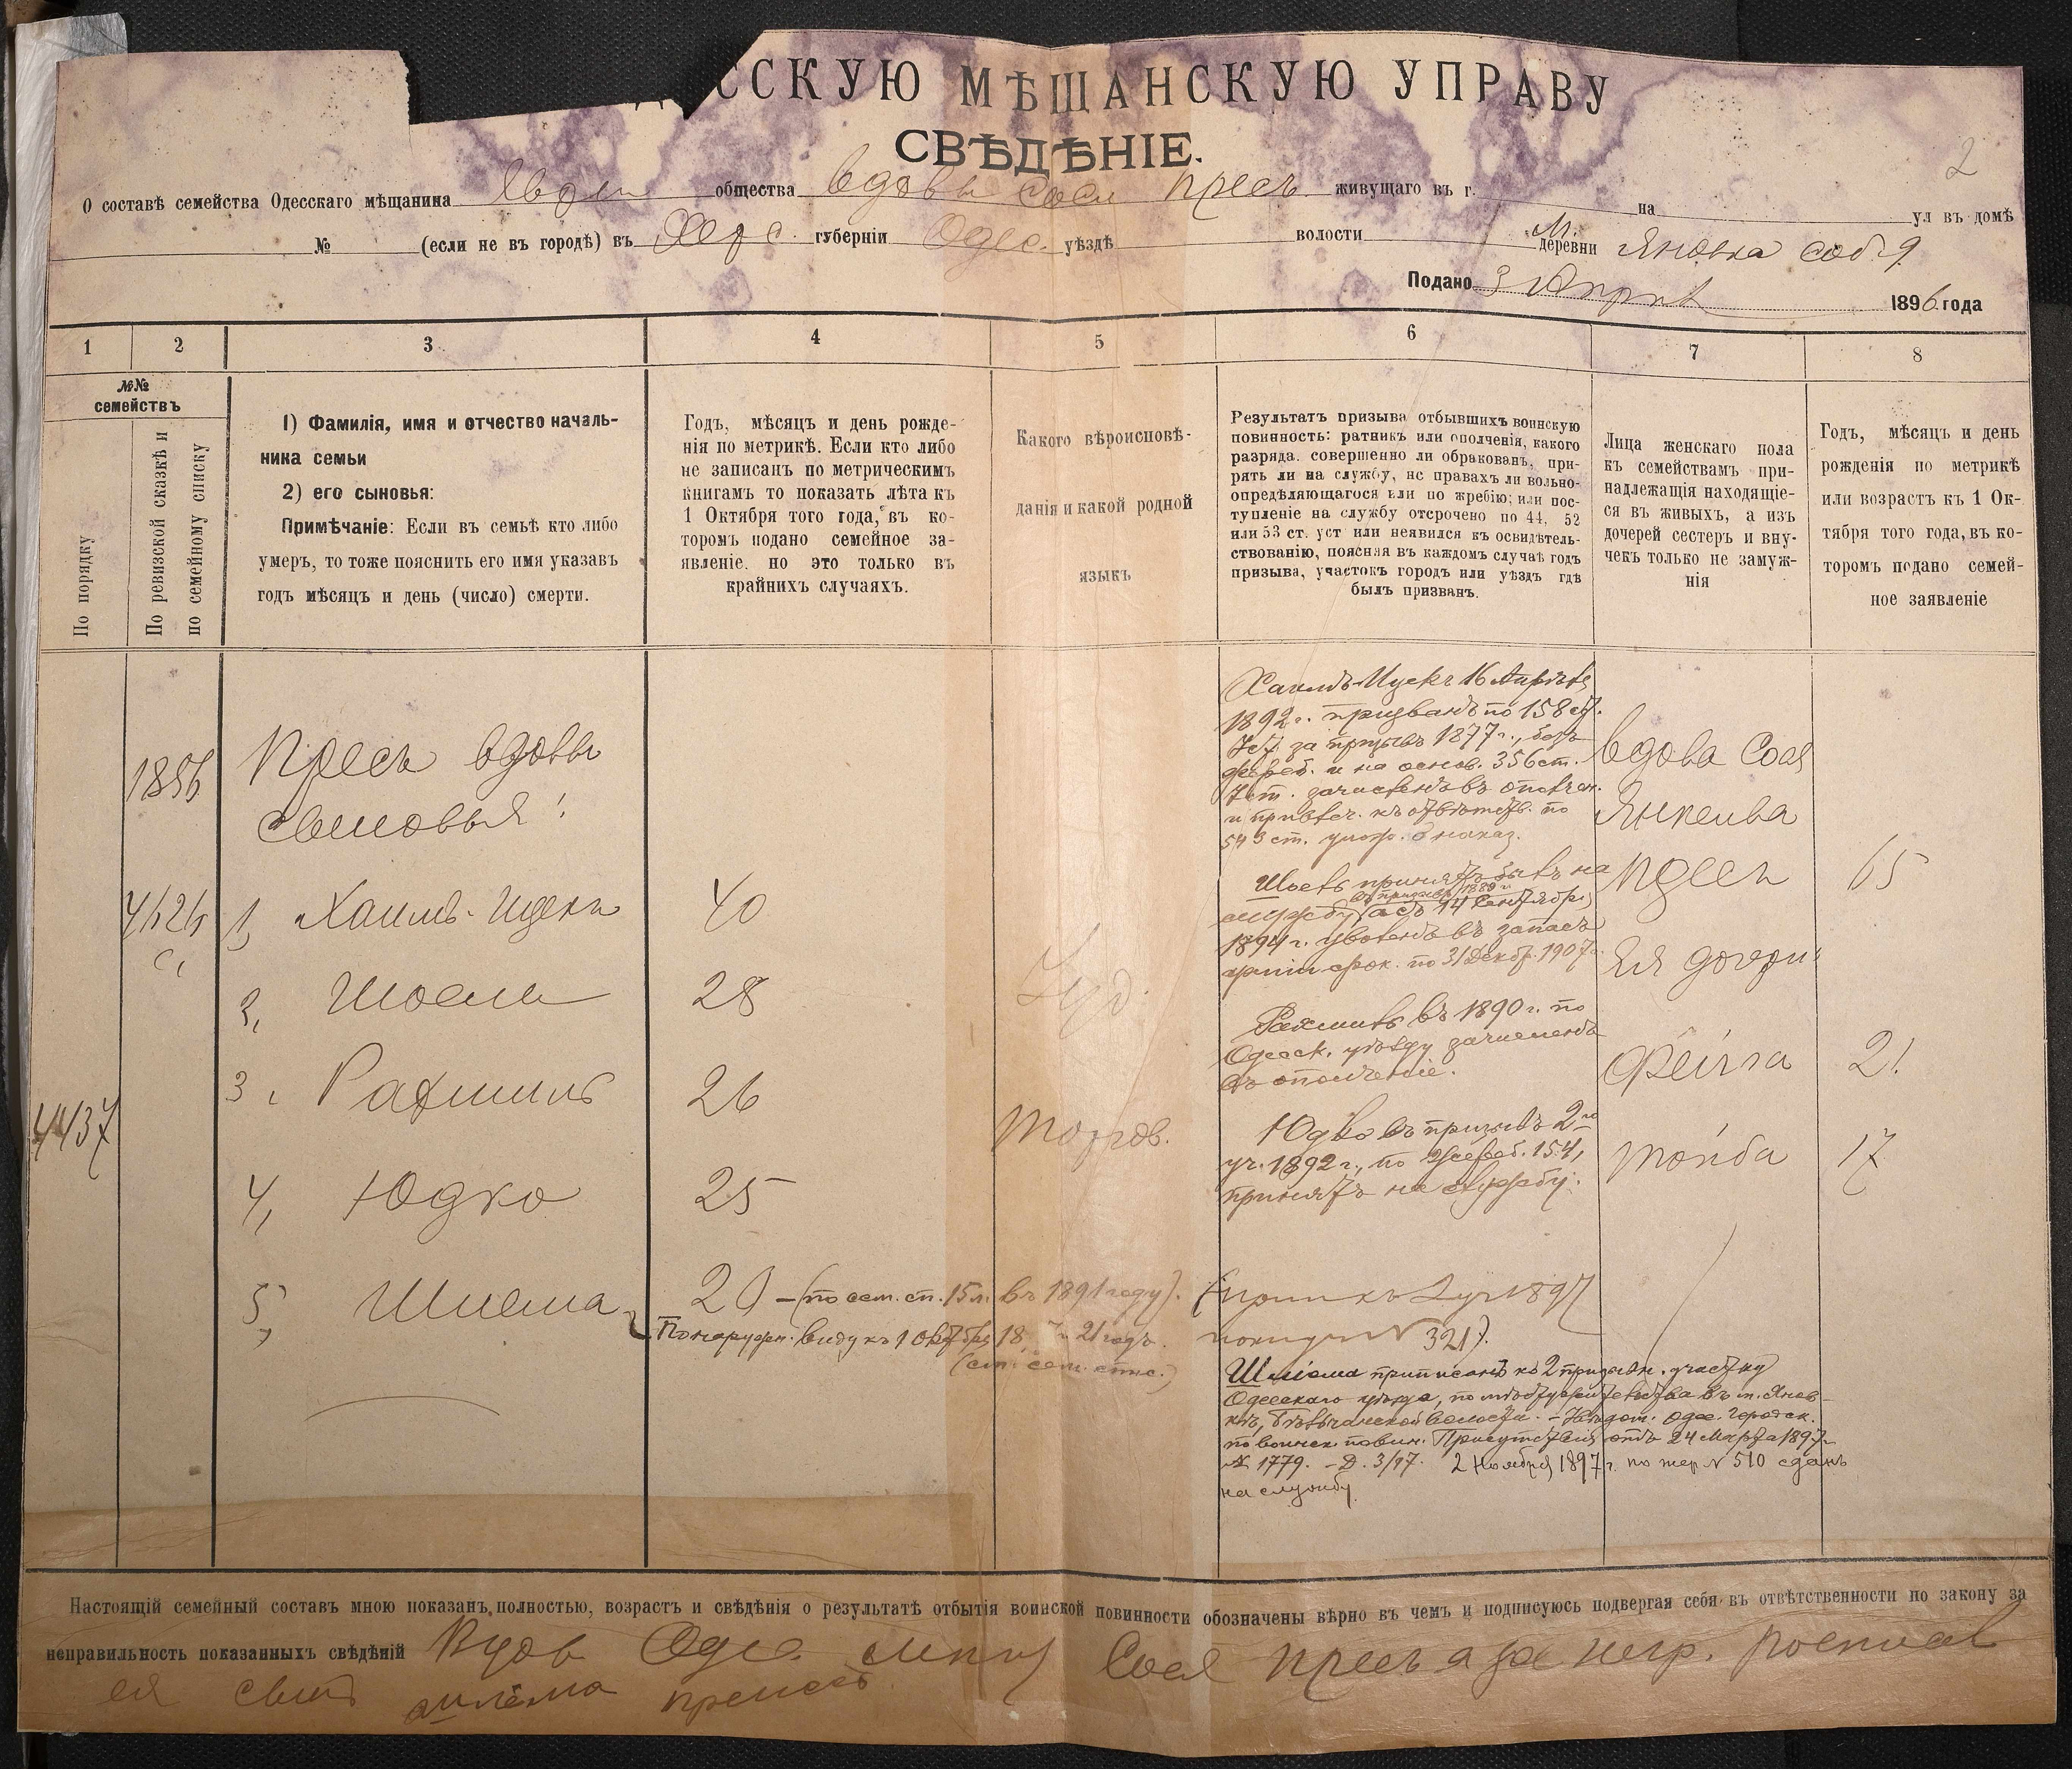 ССКУЮ МѢЩАНСКУЮ УПРАВУ
СВѢДѢНІЕ.
2
О составѣ семейства Одесскаго мѣщанина общества вдовы Соси Пресъ живущаго въ г. на ул въ домѣ
№ (если не въ городѣ) въ Херс. губерніи Одес. уѣздѣ волости М. деревни Яновка
Подано 3 1896 года
1 2 3 4 5 6 7 8
№№ семействъ
По порядку
По ревизской сказкѣ и по семейному списку
1) Фамилія, имя и отчество началь-
ника семьи
2) его сыновья:
Примѣчаніе: Если въ семьѣ кто либо
умеръ, то тоже пояснить его имя указавъ
годъ мѣсяцъ и день (число) смерти.
Годъ, мѣсяцъ и день рожде-
нія по метрикѣ. Если кто либо
не записанъ по метрическимъ
книгамъ то показать лѣта къ
1 Октября того года, въ ко-
торомъ подано семейное за-
явленіе. но это только въ
крайнихъ случаяхъ.
Какого вѣроисповѣ-
данія и какой родной
языкъ
Результатъ призыва отбывшихъ воинскую
повинность: ратникъ или ополченія, какого
разряда. совершенно ли обракованъ, при-
рять ли на службу, нс правахъ ли вольно-
опредѣляющагося или по жребію; или пос-
тупленіе на службу отсрочено по 44, 52
или 53 ст. уст или неявился къ освидѣтель-
ствованію, поясняя въ каждомъ случаѣ годъ
призыва, участокъ городъ или уѣздъ гдѣ
былъ призванъ.
Лица женскаго пола
къ семействамъ при-
надлежащія находящіе-
ся въ живыхъ, а изъ
дочерей сестеръ и вну-
чекъ только не замуж-
нія
Годъ, мѣсяцъ и день
рожденія по метрикѣ
или возрастъ къ 1 Ок-
тября того года, въ ко-
торомъ подано семей-
ное заявленіе
1856
Пресъ вдовы
сыновья:
1, Хаимъ-Ицекъ 40
2, Шоель 28
3, Рахмиль 26
4437
4, Юдко 25
5, Шлема 20 - (по сем. сп. 15 л. въ 1891 году).
По наружн. виду къ 1 Октября 18 21 годъ.
Іуд.
Хаимъ-Ицекъ 16 Апрѣля
1892 г. призванъ по 158 ст.
Уст. за призывъ 1877 г., безъ
жреб. и на основ. 356 ст.
Уст. зачисленъ въ ополчен.
и привлеч. къ отвѣтств. по
543 ст. улож. о наказ.
Шоель принятъ былъ на
въ призывъ 1889 г.
службу, а съ 14 Сентября
1894 г. уволенъ въ запасъ
арміи срок. по 31 Декабр. 1907 г.
Рахмиль въ 1890 г. по
Одесск. уѣзду зачисленъ
въ ополченіе.
Юдко въ призывъ 2-го
уч. 1892 г., по жреб. 154,
принятъ на службу.
321).
Шліома приписанъ къ 2 призывн. участку
Одесскаго уѣзда, по мѣстужительства въ м. Янов-
кѣ, волости. - Одес. Городск.
по воинск. повин. Присутствія отъ 24 Марта 1897 г.
№ 1779. - Д. 3/97. 2 Ноября 1897 г. по жер № 510 сданъ
на службу.
вдова Сося
Янкелева
Пресъ 65
Ея дочери
Фейга 21
Тойба 17
Настоящій семейный составъ мною показанъ полностью, возрастъ и свѣдѣнія о результатѣ отбытія воинской повинности обозначены вѣрно въ чемъ и подписуюсь подвергая себя въ отвѣтственности по закону за
неправильность показанныхъ свѣдѣній Вдов Одес. Сося Пресъ а за негр.
ея сынъ шлема